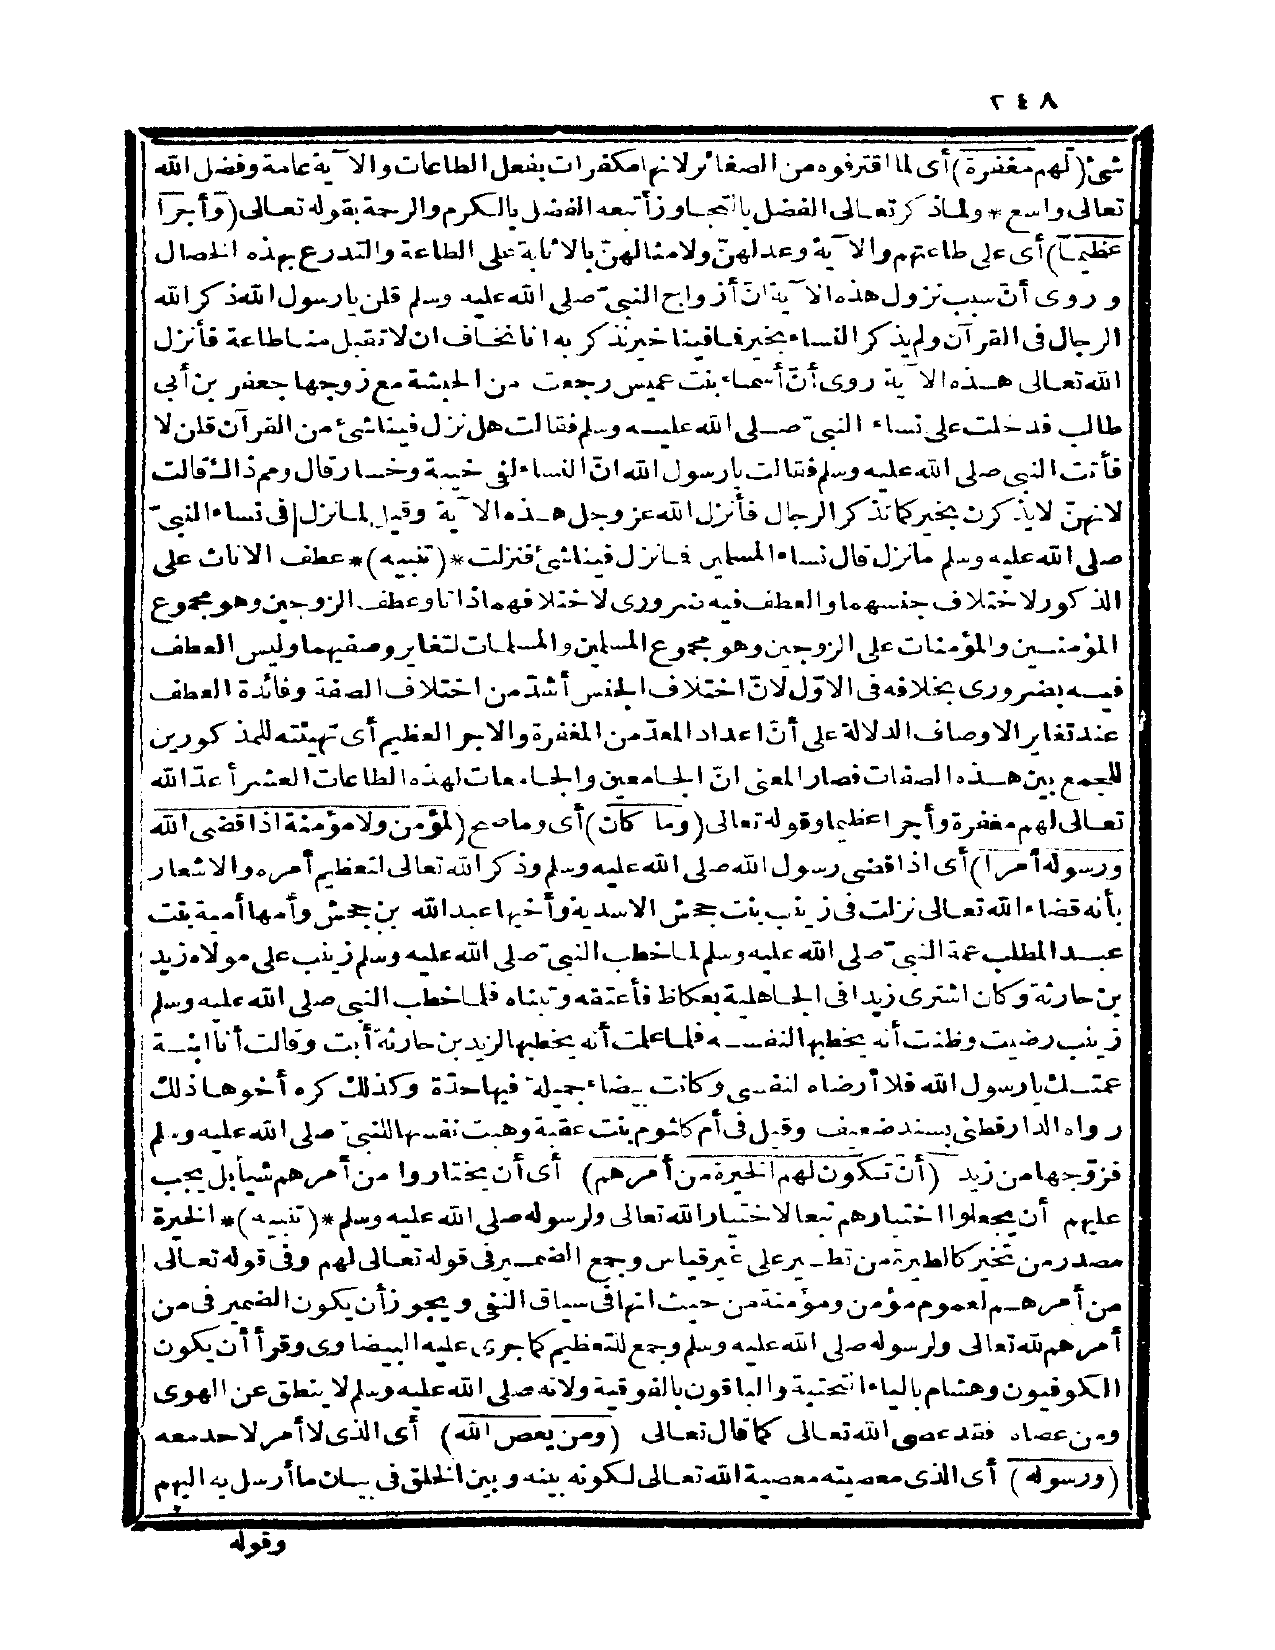 ٢٤٨
شئ (لهم مغفرة) أى لما اقترفوه من الصغائر لانها مكفرات بفعل الطاعات والآية عامة وفضل الله
تعالى واسع * ولما ذكر تعالى الفضل بالتجاوز أتبعه الفضل بالكرم والرحمة بقوله تعالى (وأجرا
عظيما) أى على طاعتهم والآية وعد لهنّ ولامثالهنّ بالاثابة على الطاعة والتدرع بهذه الخصال
وروى أنّ سبب نزول هذه الآية انّ أزواج النبىّ صلى الله عليه وسلم قلن يا رسول الله ذكر الله
الرجال فى القرآن ولم يذكر النساء بخير فما فينا خير نذكر به انا نخاف ان لا تقبل منا طاعة فأنزل
الله تعالى هذه الآية روى أنّ أسماء بنت عميس رجعت من الحبشة مع زوجها جعفر بن أبى
طالب فدخلت على نساء النبىّ صلى الله عليه وسلم فقالت هل نزل فينا شئ من القرآن قلن لا
فأتت النبى صلى الله عليه وسلم فقالت يا رسول الله انّ النساء لفى خيبة وخسار قال ومم ذاك قالت
لانهنّ لا يذكرن بخير كما تذكر الرجال فأنزل الله عز وجل هذه الآية وقيل لما نزل فى نساء النبىّ
صلى الله عليه وسلم ما نزل قال نساء المسلمين فما نزل فينا شئ فنزلت * (تنبيه) * عطف الاناث على
الذكور لاختلاف جنسهما والعطف فيه ضرورى لاختلافهما ذاتا وعطف الزوجين وهو مجموع
المؤمنين والمؤمنات على الزوجين وهو مجموع المسلمين والمسلمات لتغاير وصفيهما وليس العطف
فيه بضرورى بخلافه فى الاوّل لانّ اختلاف الجنس أشدّ من اختلاف الصفة وفائدة العطف
عند تغاير الاوصاف الدلالة على أنّ اعداد المعدّ من المغفرة والاجر العظيم أى تهيئته للمذكورين
للجمع بين هذه الصفات فصار المعنى انّ الجامعين والجامعات لهذه الطاعات العشر أعدّ الله
تعالى لهم مغفرة وأجرا عظيما وقوله تعالى (وما كان) أى وما صح (لمؤمن ولا مؤمنة اذا قضى الله
ورسوله أمرا) أى اذا قضى رسول الله صلى الله عليه وسلم وذكر الله تعالى لتعظيم أمره والاشعار
بأنه قضاء الله تعالى نزلت فى زينب بنت جحش الاسدية وأخيها عبد الله بن جحش وأمها أميمة بنت
عبد المطلب عمة النبىّ صلى الله عليه وسلم لما خطب النبىّ صلى الله عليه وسلم زينب على مولاه زيد
بن حارثة وكان اشترى زيدا فى الجاهلية بعكاظ فأعتقه وتبناه فلما خطب النبى صلى الله عليه وسلم
زينب رضيت وظنت أنه يخطبها لنفسه فلما علمت أنه يخطبها لزيد بن حارثة أبت وقالت أنا ابنة
عمتك يا رسول الله فلا أرضاه لنفسى وكانت بيضاء جميلة فيها حدّة وكذلك كره أخوها ذلك
رواه الدارقطنى بسند ضعيف وقيل فى أم كلثوم بنت عقبة وهبت نفسها للنبىّ صلى الله عليه وسلم
فزوّجها من زيد (أن تكون لهم الخيرة من أمرهم) أى أن يختاروا من أمرهم شيأ بل يجب
عليهم أن يجعلوا اختيارهم تبعا لاختيار الله تعالى ولرسوله صلى الله عليه وسلم * (تنبيه) * الخيرة
مصدر من تخير كالطيرة من تطير على غير قياس وجمع الضمير فى قوله تعالى لهم وفى قوله تعالى
من أمرهم لعموم مؤمن ومؤمنة من حيث انها فى سياق النفى ويجوز أن يكون الضمير فى من
أمرهم لله تعالى ولرسوله صلى الله عليه وسلم وجمع للتعظيم كما جرى عليه البيضاوى وقرأ أن يكون
الكوفيون وهشام بالياء التحتية والباقون بالفوقية ولانه صلى الله عليه وسلم لا ينطق عن الهوى
ومن عصاه فقد عصى الله تعالى كما قال تعالى (ومن يعص الله) أى الذى لا أمر لاحد معه
(ورسوله) أى الذى معصيته معصية الله تعالى لكونه بينه وبين الخلق فى بيان ما أرسل به اليهم
وقوله